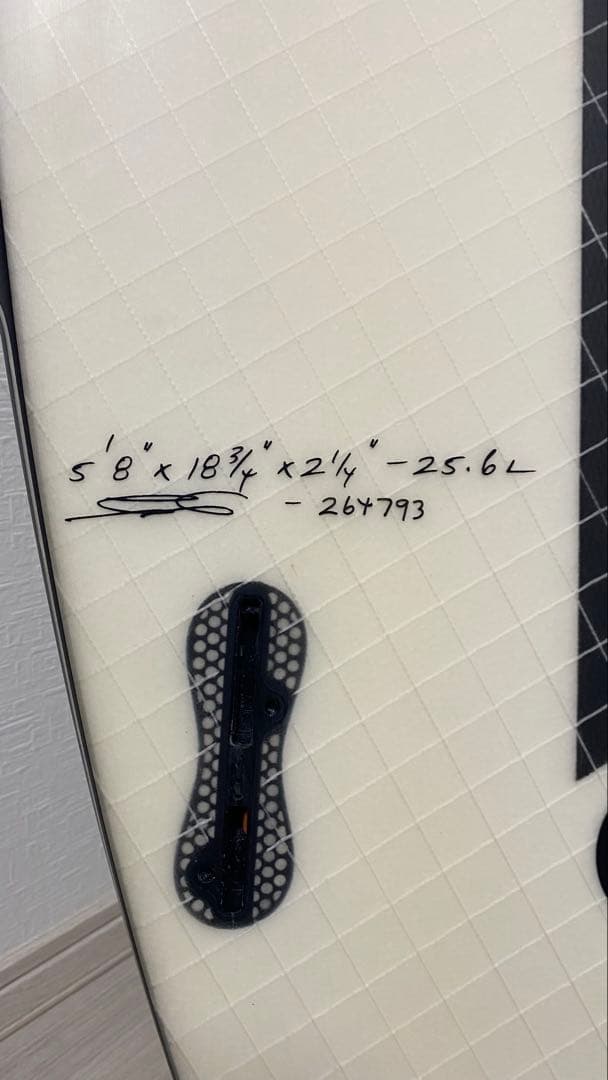 5'8" x 18 3/4" x 2 1/4" - 25.6L
- 264793